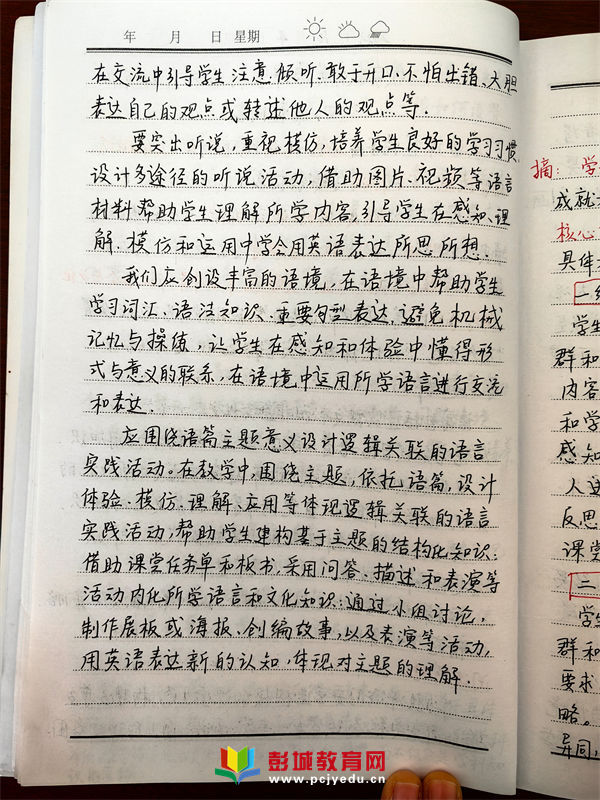 年 月 日 星期
在交流中引导学生注意倾听、敢于开口、不怕出错、大胆
表达自己的观点或转述他人的观点等.
要突出听说，重视模仿，培养学生良好的学习习惯，
设计多途径的听说活动；借助图片、视频等语言
材料帮助学生理解所学内容，引导学生在感知、理
解、模仿和运用中学会用英语表达所思所想.
我们应创设丰富的语境，在语境中帮助学生
学习词汇、语法知识、重要句型表达，避免机械
记忆与操练，让学生在感知和体验中懂得形
式与意义的联系，在语境中运用所学语言进行交流
和表达.
应围绕语篇主题意义设计逻辑关联的语言
实践活动。在教学中，围绕主题，依托语篇，设计
体验、模仿、理解、应用等体现逻辑关联的语言
实践活动，帮助学生建构基于主题的结构化知识；
借助课堂任务单和板书，采用问答、描述和表演等
活动内化所学语言和文化知识；通过小组讨论，
制作展板或海报、创编故事，以及表演等活动，
用英语表达新的认知，体现对主题的理解.
摘：学
成就
核心
具体
一
学生
群和
内容
和学
感知
人进
反思
课堂
二
学生
群和
要求
略。
异同，
彭城教育网
www.pcjyedu.cn